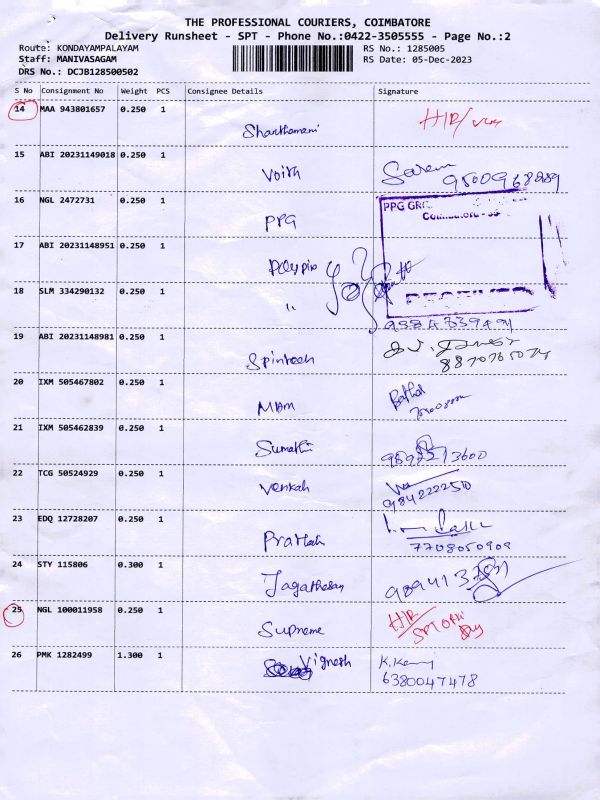 THE PROFESSIONAL COURIERS, COIMBATORE
Delivery Runsheet - SPT - Phone No.:0422-3505555 - Page No.:2
Route: KONDAYAMPALAYAM RS No.: 1285005
Staff: MANIVASAGAM RS Date: 05-Dec-2023
DRS No.: DCJB128500502
S No Consignment No Weight PCS Consignee Details Signature
14 MAA 943801657 0.250 1
H/R/
15 ABI 20231149018 0.250 1
Voith 9500968889
16 NGL 2472731 0.250 1 PPG GR
PPG
17 ABI 20231148951 0.250 1
18 SLM 334290132 0.250 1
" RECEIVED
19 ABI 20231148981 0.250 1
Spintech 8870765074
20 IXM 505467802 0.250 1
21 IXM 505462839 0.250 1
Sumathi 9892213600
22 TCG 50524929 0.250 1
Venkah 9842222510
23 EDQ 12728207 0.250 1
7708050909
24 STY 115806 0.300 1
Jagathesan
25 NGL 100011958 0.250 1 H/R
Supreme
26 PMK 1282499 1.300 1
Vignesh 6380047478